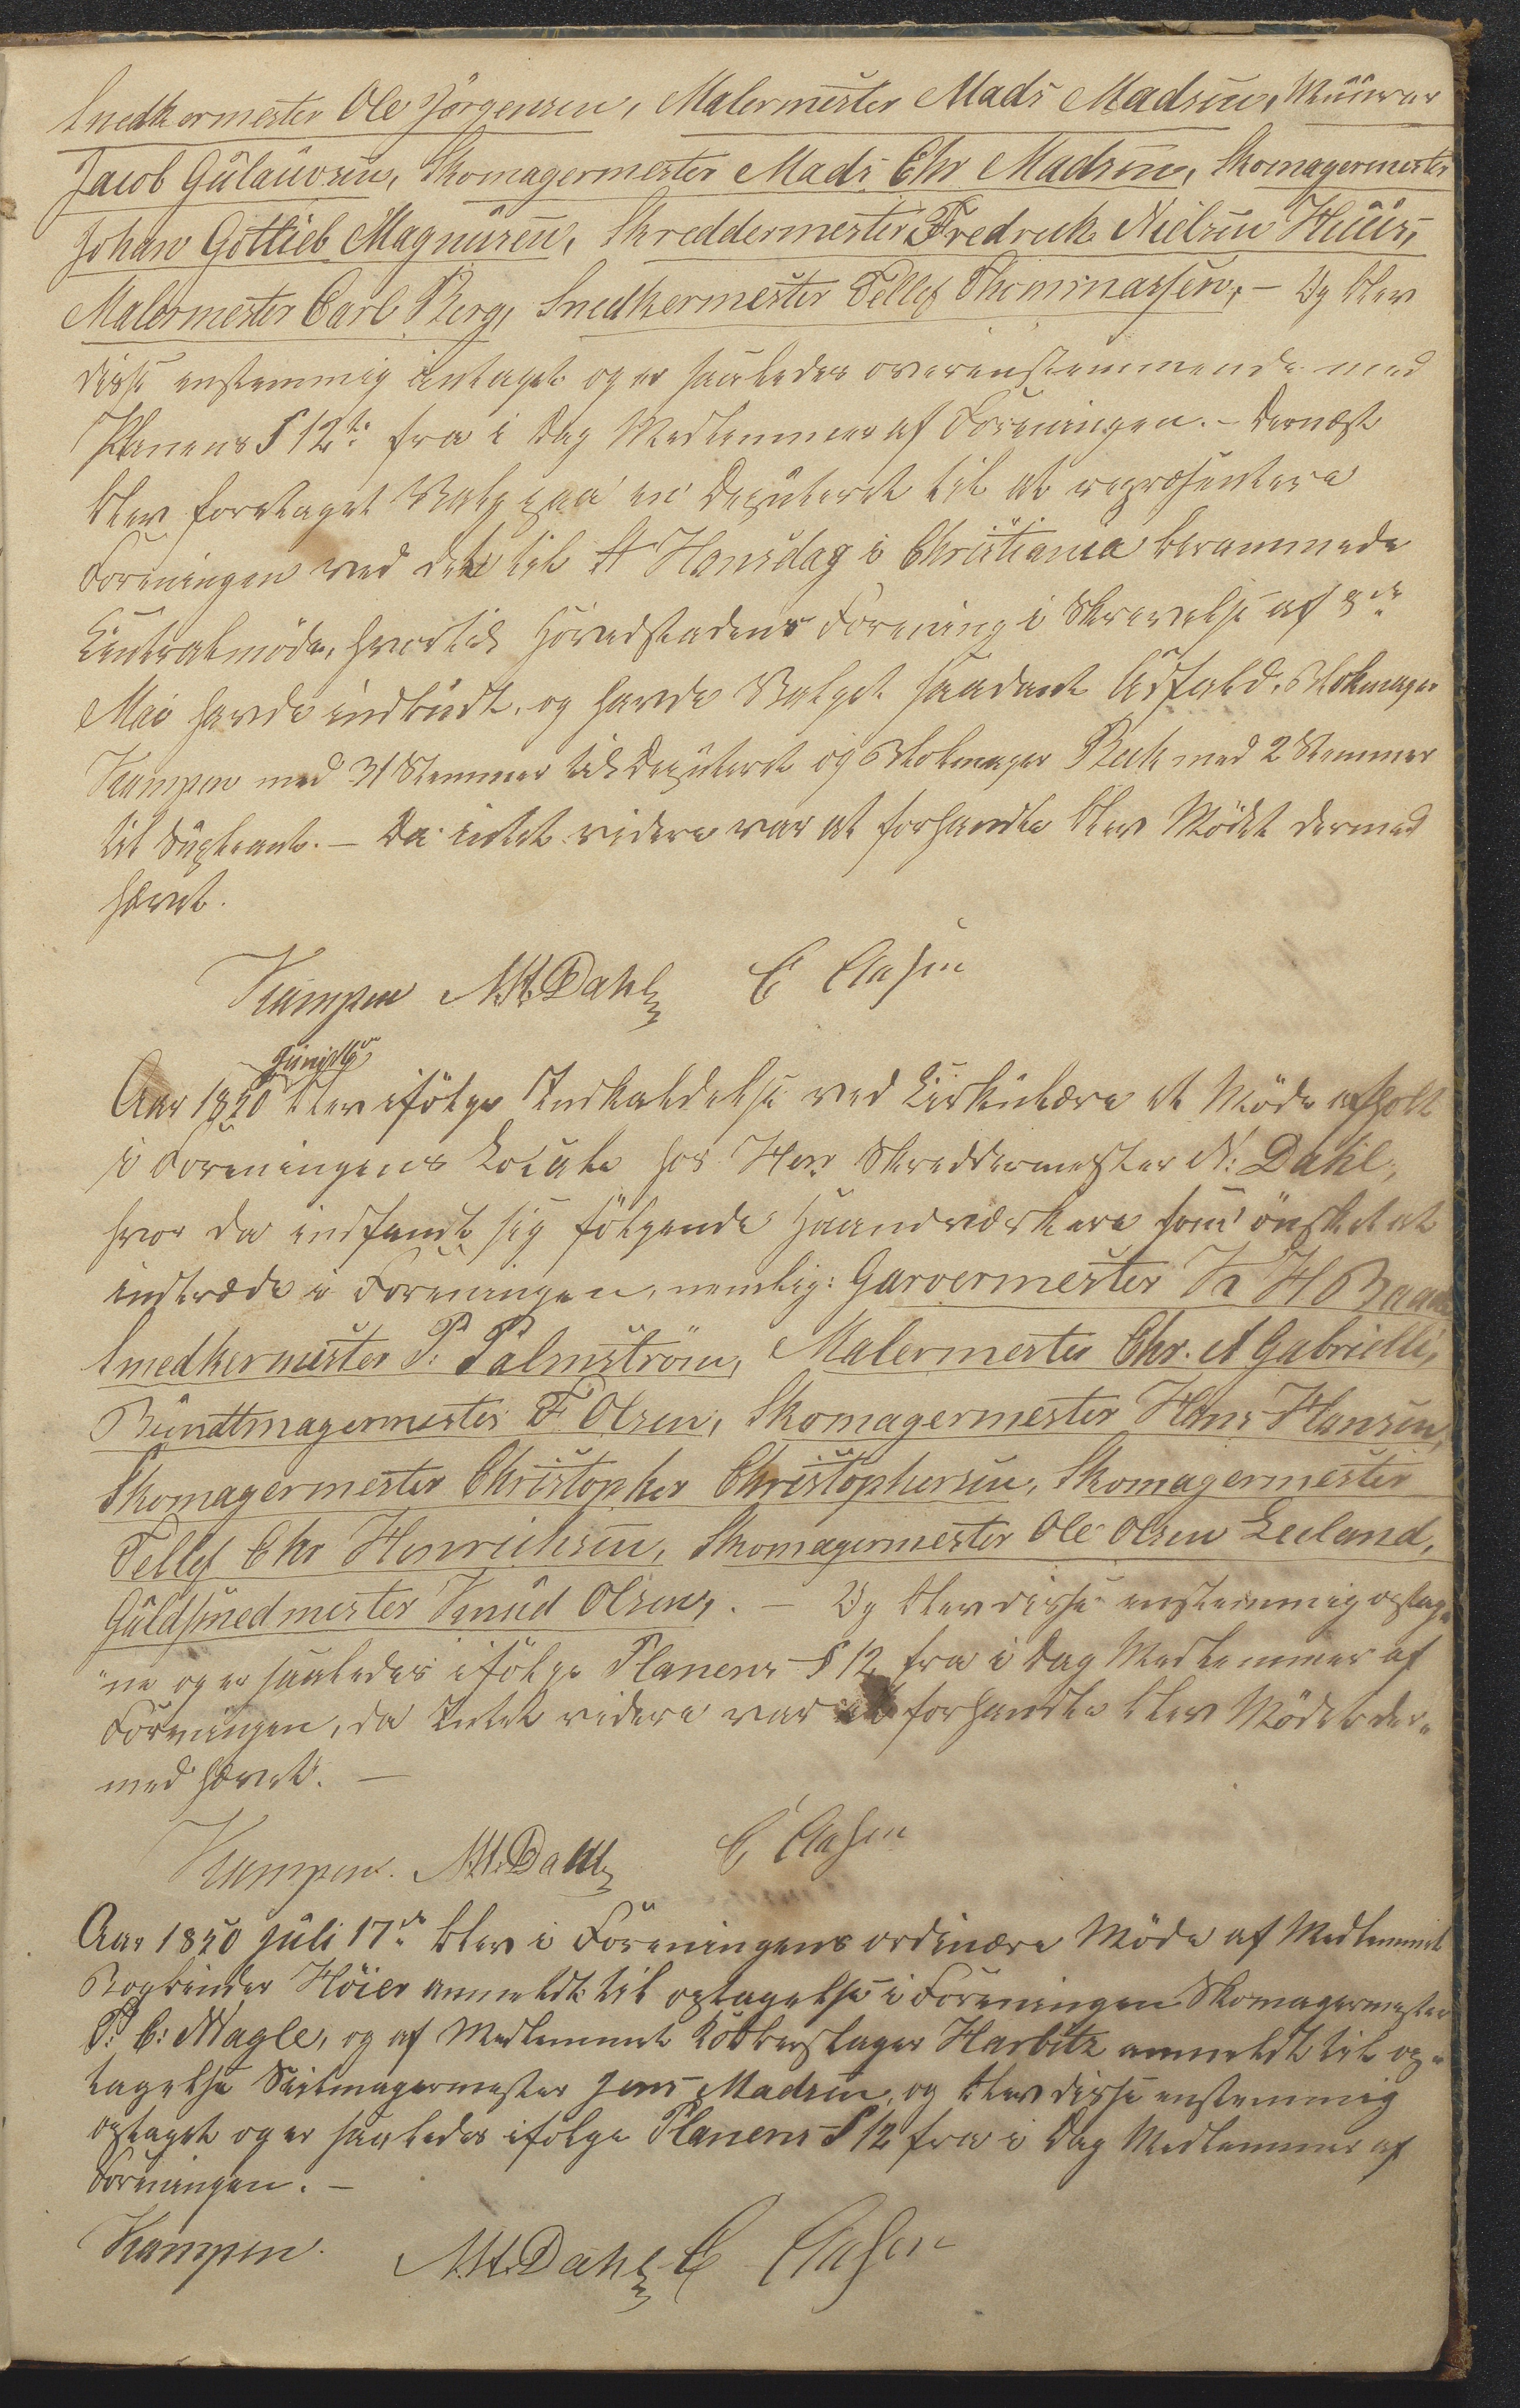 Snedkermester Ole Jörgensen, Malermester Mads Madsen, Muurer
Jacob Gulauvsen, Skomagermester Mads Chr Madsen, Skomagermester
Johan Gottlieb Magnusen, Skreddermester Fredrick Nielsen Huus,
Malermester Carl Berg, Snedkermester Tellef Thommassen, – Og blev
disse enstemmig antaget og er saaledes overenstemmende med
Planens § 12te fra i Dag Medlemmer af Foreningen. – Dernæst
blev foretaget Valg paa en Deputeret til at repræsentere
Foreningen ved det til St Hansdag i Christiania berammede
Centralmöde, hvortil Hovedstadens Forening i Skrivelse af 3die
Mai havde indbudt, og havde Valget saadant Udfald. Blokmager
Kampen med 31 Stemmer til Deputeret og Blokmager Beck med 2 Stemmer
til Supleant. – Da intet videre var at forhandle blev Mödet dermed
hævet.
Kampen M.H.Dahl E Clasen
Juni
Aar 1850 blev ifölge Indkaldelse ved Cirkulære et Möde afholt
i Foreningens Locale hos Herr Skreddermester N: Dahl,
hvor da indfandt sig fölgende Haandværkere som önsket at
indtræde i Foreningen, nemlig: Garvermester H
Smedkermester P: Palmström, Malermester Chr. A Gabrielli,
Bundtmagermester F Olsen, Skomagermester Hans Hansen,
Skomagermester Christopher Christophersen, Skomagermester
Tellef Chr Henrichsen, Skomagermester Ole Olsen Leeland,
Guldsmedmester Knud Olsen, . – Og blev disse enstemmig optag„
„ne og er saaledes ifölge Planens § 12 fra i Dag Medlemmer af
Foreningen, da Intet videre var at forhandle blev Mödet der„
med hævet. –
Kampen. M.H.Dahl E Clasen
Aar 1850 Juli 17de blev i Foreningens ordinære Möde af Medlemmet
Bogbinder Höier anmeldt til optagelse i Foreningen Skomagermester
P. C: Nagle, og af Medlemmet Kobberslager Harbitz anmeldt til op„
tagelse Seilmagermester Jens Madsen, og blev disse enstemmig
optaget og er saaledes ifölge Planens § 12 fra i Dag Medlemmer af
Foreningen. –
Kampen. M.H.Dahl E Clasen